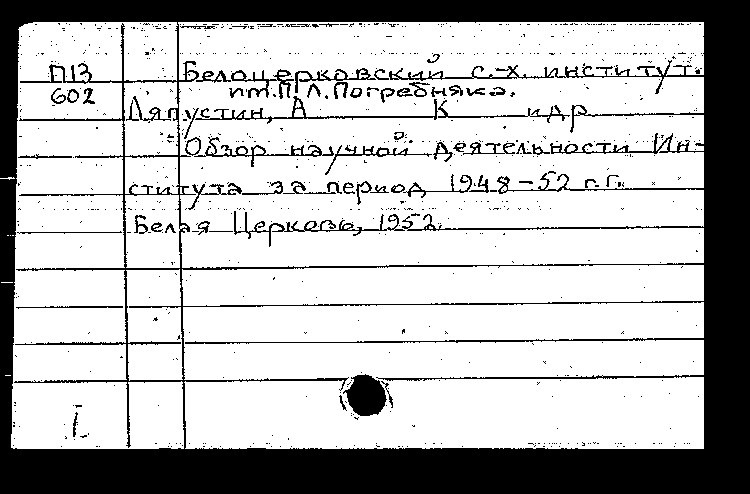 П13 Белоцерковский с.-х. институт.
602 им. П.Л. Погребняка.
Ляпустин, А К и др
Обзор научной деятельности Ин-
ститута за период 1948-52 г.г.
Белая Церковь, 1952.